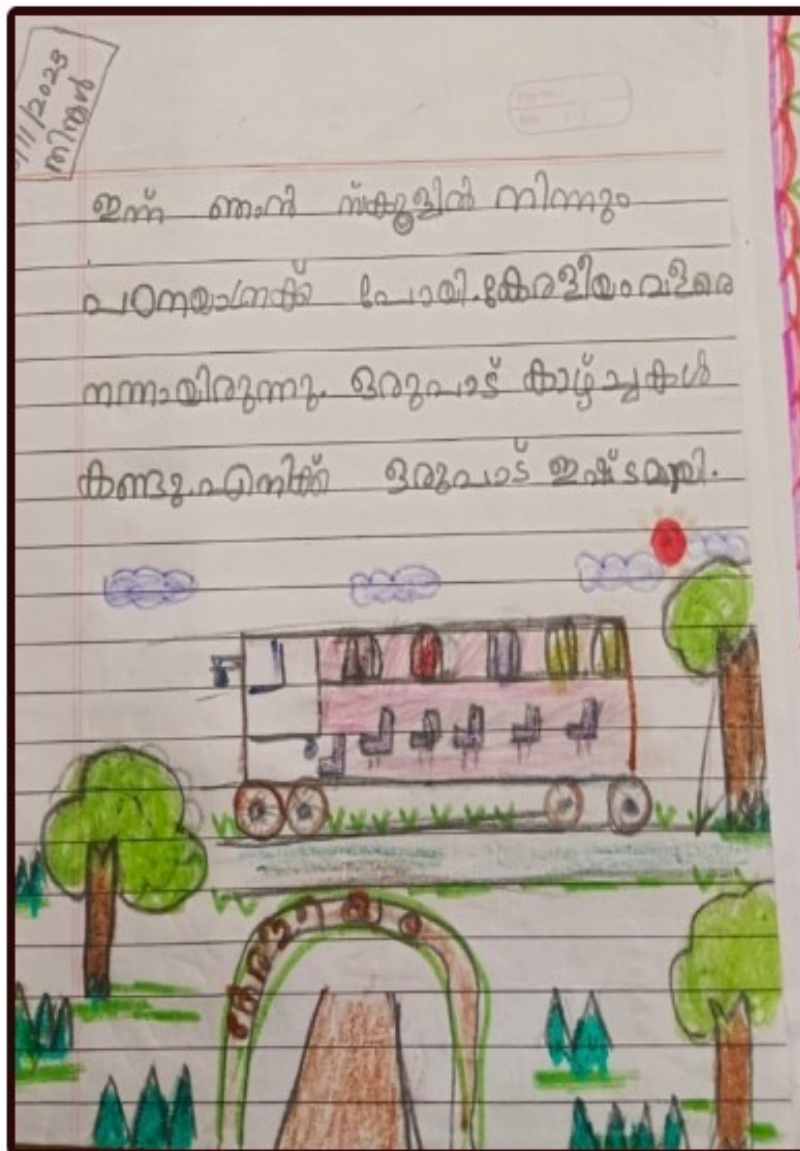 /11/2023
തിങ്കൾ
ഇന്ന് ഞാൻ സ്കൂളിൽ നിന്നും
പഠനയാത്രക്ക് പോയി. കേരളീയം വളരെ
നന്നായിരുന്നു. ഒരുപാട് കാഴ്ച്ചകൾ
കണ്ടു. എനിക്ക് ഒരുപാട് ഇഷ്ടമായി.
കേരളീയം